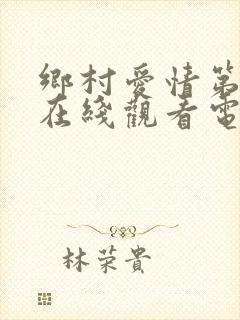 鄉村愛情第
在綫觀看電
林荣貴